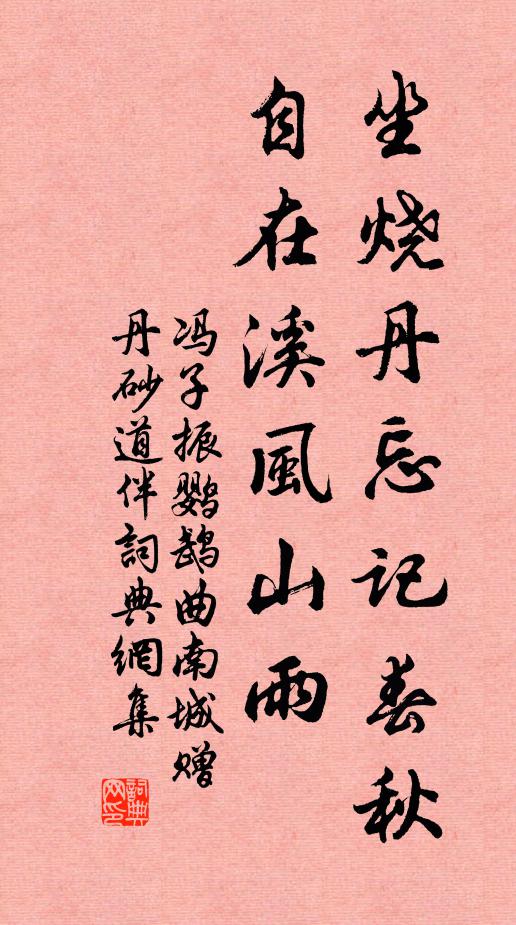 坐烧丹忘记春秋
自在溪風山雨
冯子振鹦鹉曲南城赠
丹砂道伴詞典網集
詞典网印